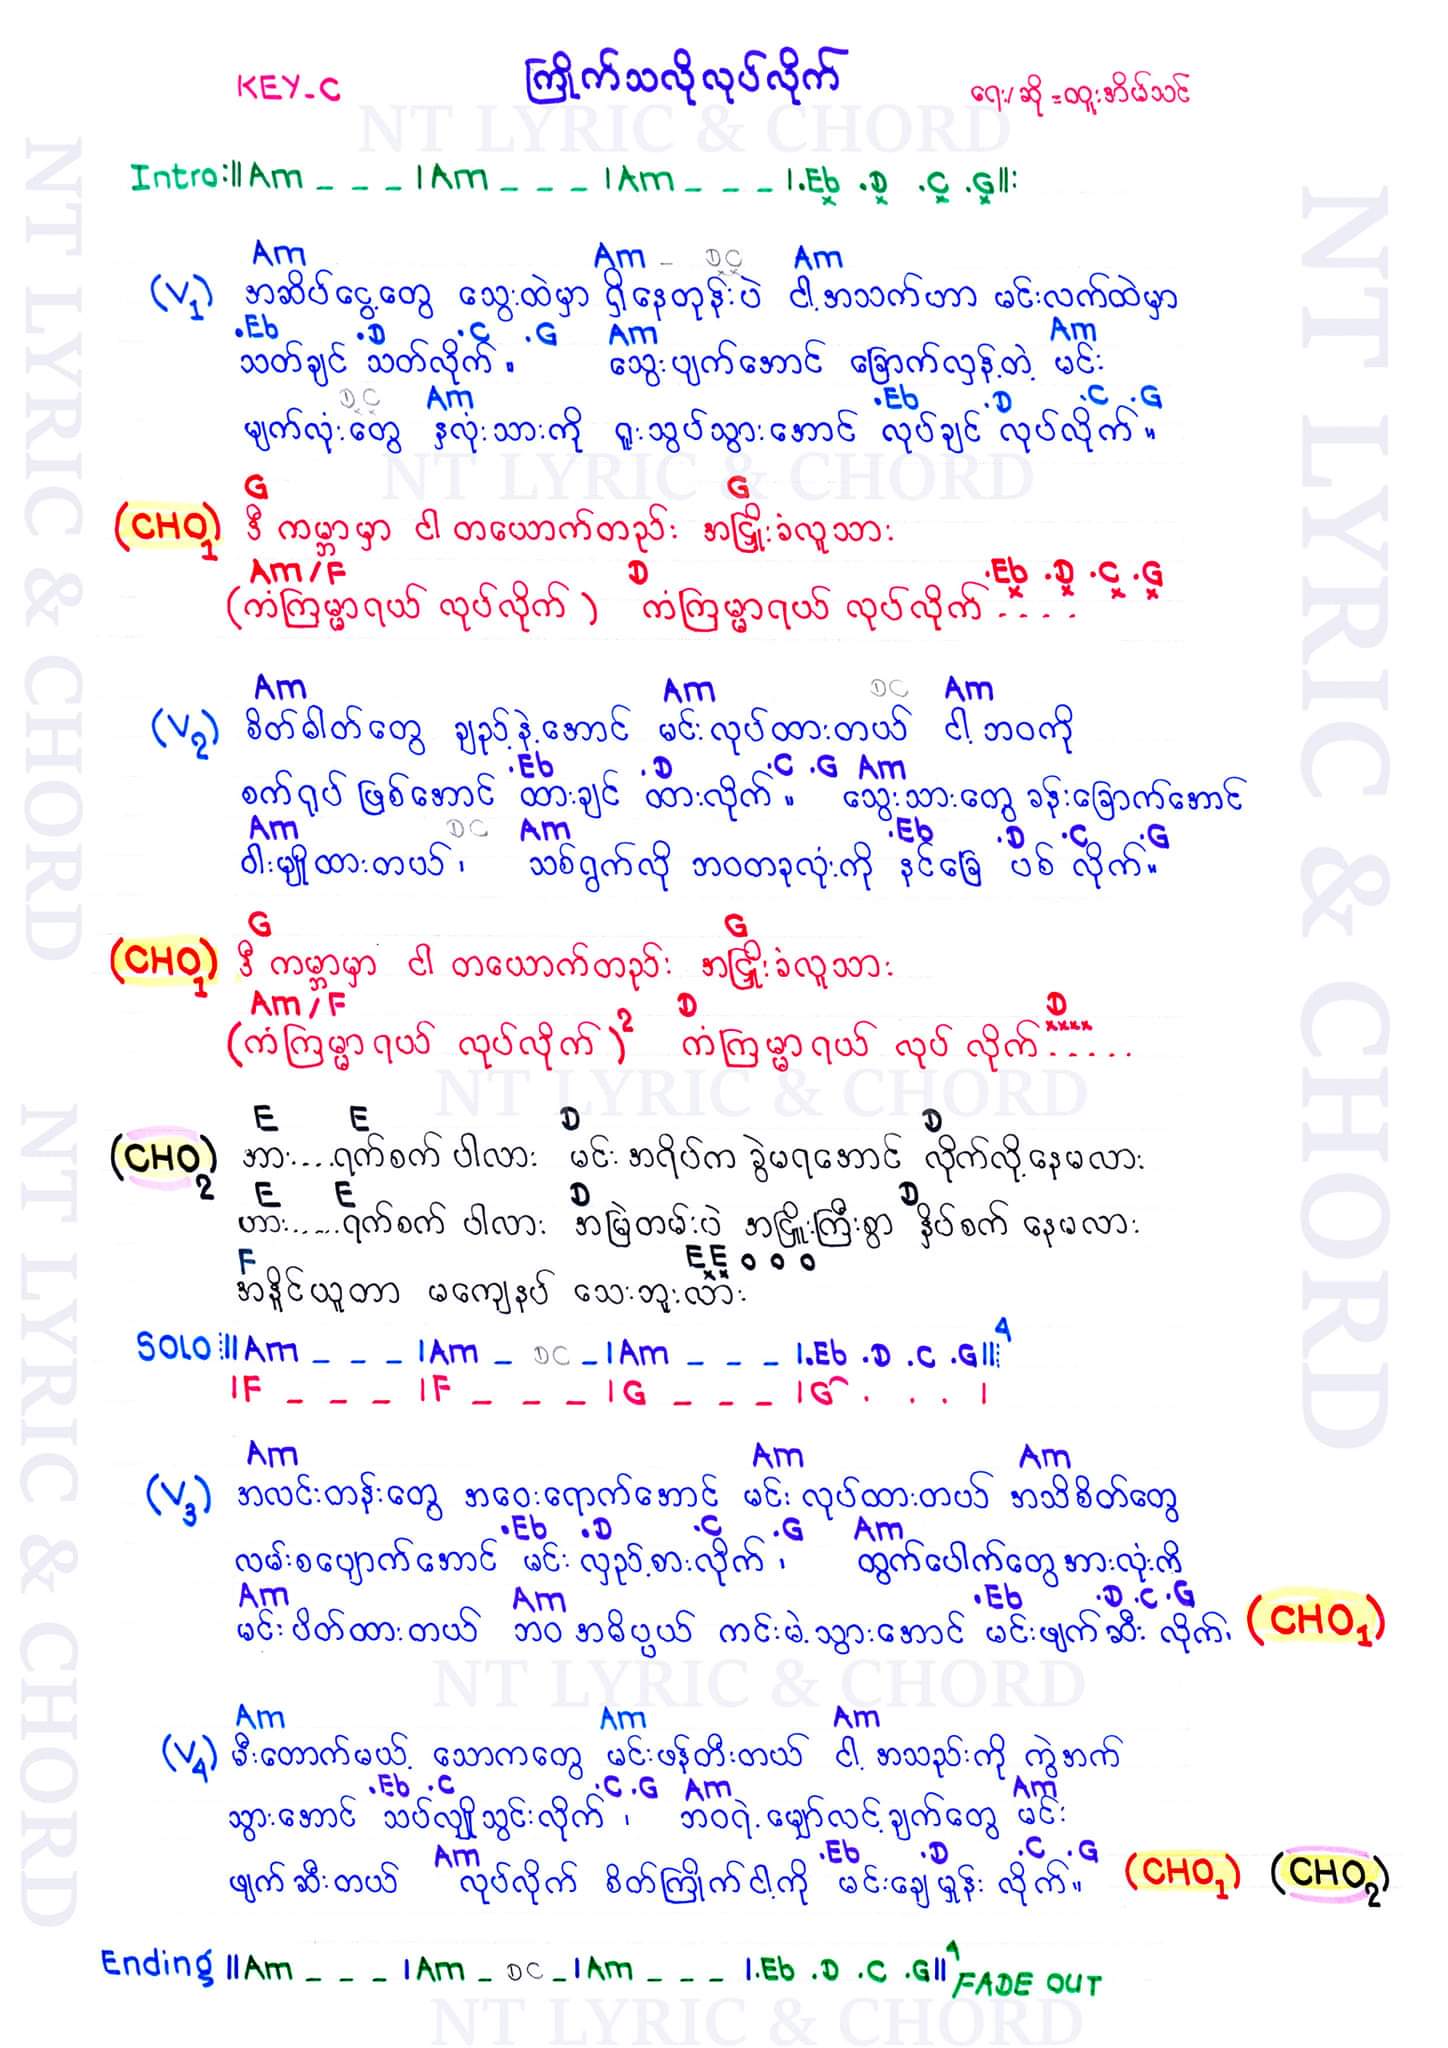 KEY-C
ကြိုက်သလိုလုပ်လိုက်
ရေး/ဆို = ထူးအိမ်သင်
Intro:||Am _ _ _ |Am _ _ _ |Am _ _ _ |.Eb .D .C .G||:
Am Am - DC Am
(V1) အဆိပ်ငွေ့တွေ သွေးထဲမှာ ရှိနေတုန်းပဲ ငါ့အသက်ဟာ မင်းလက်ထဲမှာ
.Eb .D .C .G Am Am
သတ်ချင် သတ်လိုက်။ သွေးပျက်အောင် ခြောက်လှန့်တဲ့ မင်း
DC Am .Eb .D .C .G
မျက်လုံးတွေ နှလုံးသားကို ရူးသွပ်သွားအောင် လုပ်ချင် လုပ်လိုက်။
G G
(CHO1) ဒီ ကမ္ဘာမှာ ငါ တယောက်တည်း အငြှိုးခံလူသား
Am/F D .Eb .D .C .G
(ကံကြမ္မာရယ် လုပ်လိုက်) ကံကြမ္မာရယ် လုပ်လိုက် ....
Am Am DC Am
(V2) စိတ်ဓါတ်တွေ ချည့်နဲ့အောင် မင်းလုပ်ထားတယ် ငါ့ ဘဝကို
.Eb .D .C .G Am
စက်ရုပ် ဖြစ်အောင် ထားချင် ထားလိုက်။ သွေးသားတွေ ခန်းခြောက်အောင်
Am DC Am .Eb .D .C .G
ဝါးမျိုထားတယ်၊ သစ်ရွက်လို ဘဝတခုလုံးကို နင်ခြေ ပစ် လိုက်။
G G
(CHO1) ဒီ ကမ္ဘာမှာ ငါ တယောက်တည်း အငြှိုးခံလူသား
Am/F D D
(ကံကြမ္မာရယ် လုပ်လိုက်)2 ကံကြမ္မာရယ် လုပ် လိုက်.....
E E D D
(CHO2) အား....ရက်စက် ပါလား မင်း အရိပ်က ခွဲမရအောင် လိုက်လို့နေမလား
E E D D
ဟား......ရက်စက် ပါလား အမြဲတမ်းပဲ အငြှိုးကြီးစွာ နှိပ်စက် နေမလား
F EE o o o
အနိူင်ယူတာ မကျေနပ် သေးဘူးလား
SOLO :||Am _ _ _ |Am _ DC _ |Am _ _ _ |.Eb .D .C .G||: 4
|F _ _ _ |F _ _ _ |G _ _ _ |G . . . |
Am Am Am
(V3) အလင်းတန်းတွေ အဝေးရောက်အောင် မင်း လုပ်ထားတယ် အသိစိတ်တွေ
.Eb .D .C .G Am
လမ်းစပျောက်အောင် မင်း လှည့်စားလိုက်၊ ထွက်ပေါက်တွေအားလုံးကို
Am Am .Eb .D .C .G
မင်းပိတ်ထားတယ် ဘဝ အဓိပ္ပယ် ကင်းမဲ့သွားအောင် မင်းဖျက်ဆီး လိုက်၊ (CHO1)
Am Am Am
(V4) မီးတောက်မယ့် သောကတွေ မင်းဖန်တီးတယ် ငါ့ အသည်းကို ကွဲအက်
.Eb .C .C .G Am Am
သွားအောင် သပ်လျှိုသွင်းလိုက်၊ ဘဝရဲ့မျှော်လင့်ချက်တွေ မင်း
Am .Eb .D .C .G
ဖျက်ဆီးတယ် လုပ်လိုက် စိတ်ကြိုက်ငါ့ကို မင်းချေမှုန်း လိုက်။ (CHO1) (CHO2)
Ending ||Am _ _ _ |Am _ DC _ |Am _ _ _ |.Eb .D .C .G|| 4 FADE OUT
NT LYRIC & CHORD